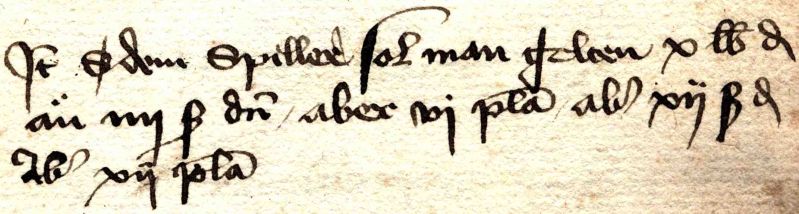 Jt dem Spiller sol man gelten x lb d
an iiij ß dn aber vi pla ab xij ß d
Ab xij pla